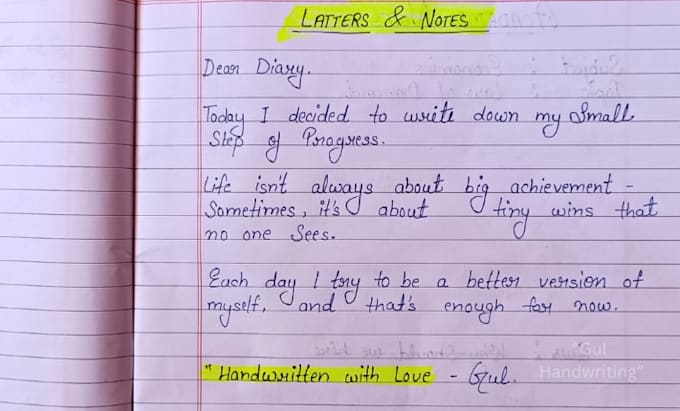 LATTERS & NOTES
Dear Diary.
Today I decided to write down my Small
Step of Progress.
Life isn't always about big achievement -
Sometimes, it's about tiny wins that
no one Sees.
Each day I try to be a better version of
myself, and that's enough for now.
"Handwritten with Love - Gul.
"Gul
Handwriting"